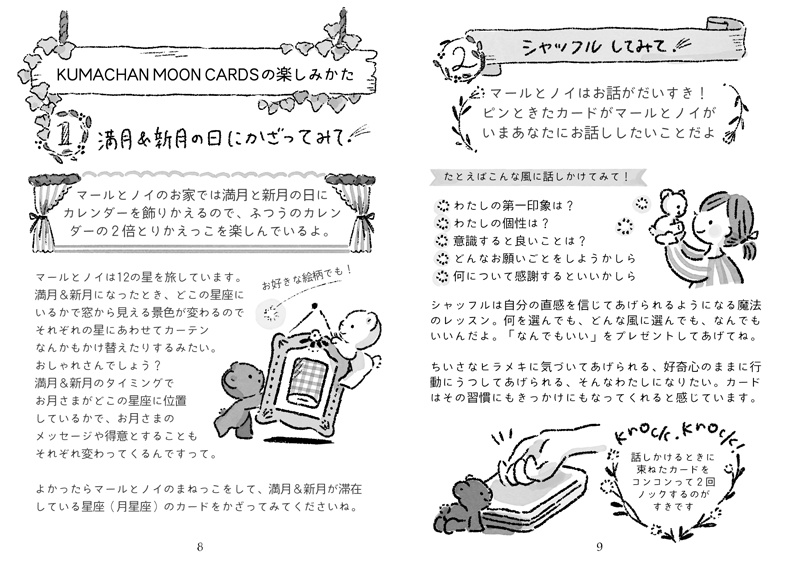 KUMACHAN MOON CARDSの楽しみかた
1 満月&新月の日にかざってみて!
マールとノイのお家では満月と新月の日に
カレンダーを飾りかえるので、ふつうのカレン
ダーの2倍とりかえっこを楽しんでいるよ。
マールとノイは12の星を旅しています。
満月&新月になったとき、どこの星座に
いるかで窓から見える景色が変わるので
それぞれの星にあわせてカーテン
なんかもかけ替えたりするみたい。
おしゃれさんでしょう?
満月&新月のタイミングで
お月さまがどこの星座に位置
しているかで、お月さまの
メッセージや得意とすることも
それぞれ変わってくるんですって。
お好きな絵柄でも!
よかったらマールとノイのまねっこをして、満月&新月が滞在
している星座(月星座)のカードをかざってみてくださいね。
8
2 シャッフルしてみて!
マールとノイはお話がだいすき!
ピンときたカードがマールとノイが
いまあなたにお話ししたいことだよ
たとえばこんな風に話しかけてみて!
わたしの第一印象は?
わたしの個性は?
意識すると良いことは?
どんなお願いごとをしようかしら
何について感謝するといいかしら
シャッフルは自分の直感を信じてあげられるようになる魔法
のレッスン。何を選んでも、どんな風に選んでも、なんでも
いいんだよ。「なんでもいい」をプレゼントしてあげてね。
ちいさなヒラメキに気づいてあげられる、好奇心のままに行
動にうつしてあげられる、そんなわたしになりたい。カード
はその習慣にもきっかけにもなってくれると感じています。
knock, knock!
話しかけるときに
束ねたカードを
コンコンって2回
ノックするのが
すきです
9